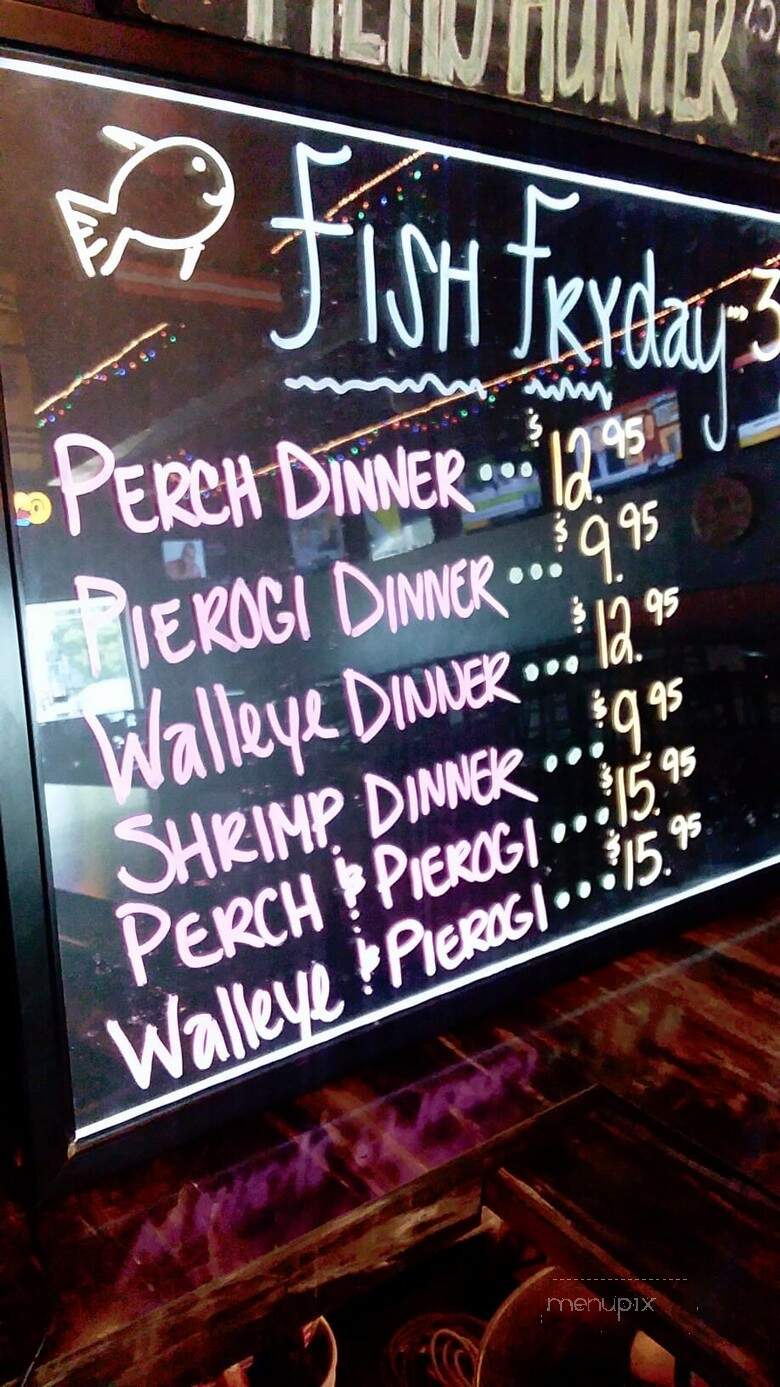 HUNTER
FISH FRYday... 3
PERCH DINNER... $12.95
PIEROGI DINNER... $9.95
Walleye DINNER... $12.95
SHRIMP DINNER... $9.95
PERCH & PIEROGI... $15.95
Walleye & PIEROGI... $15.95
menupix